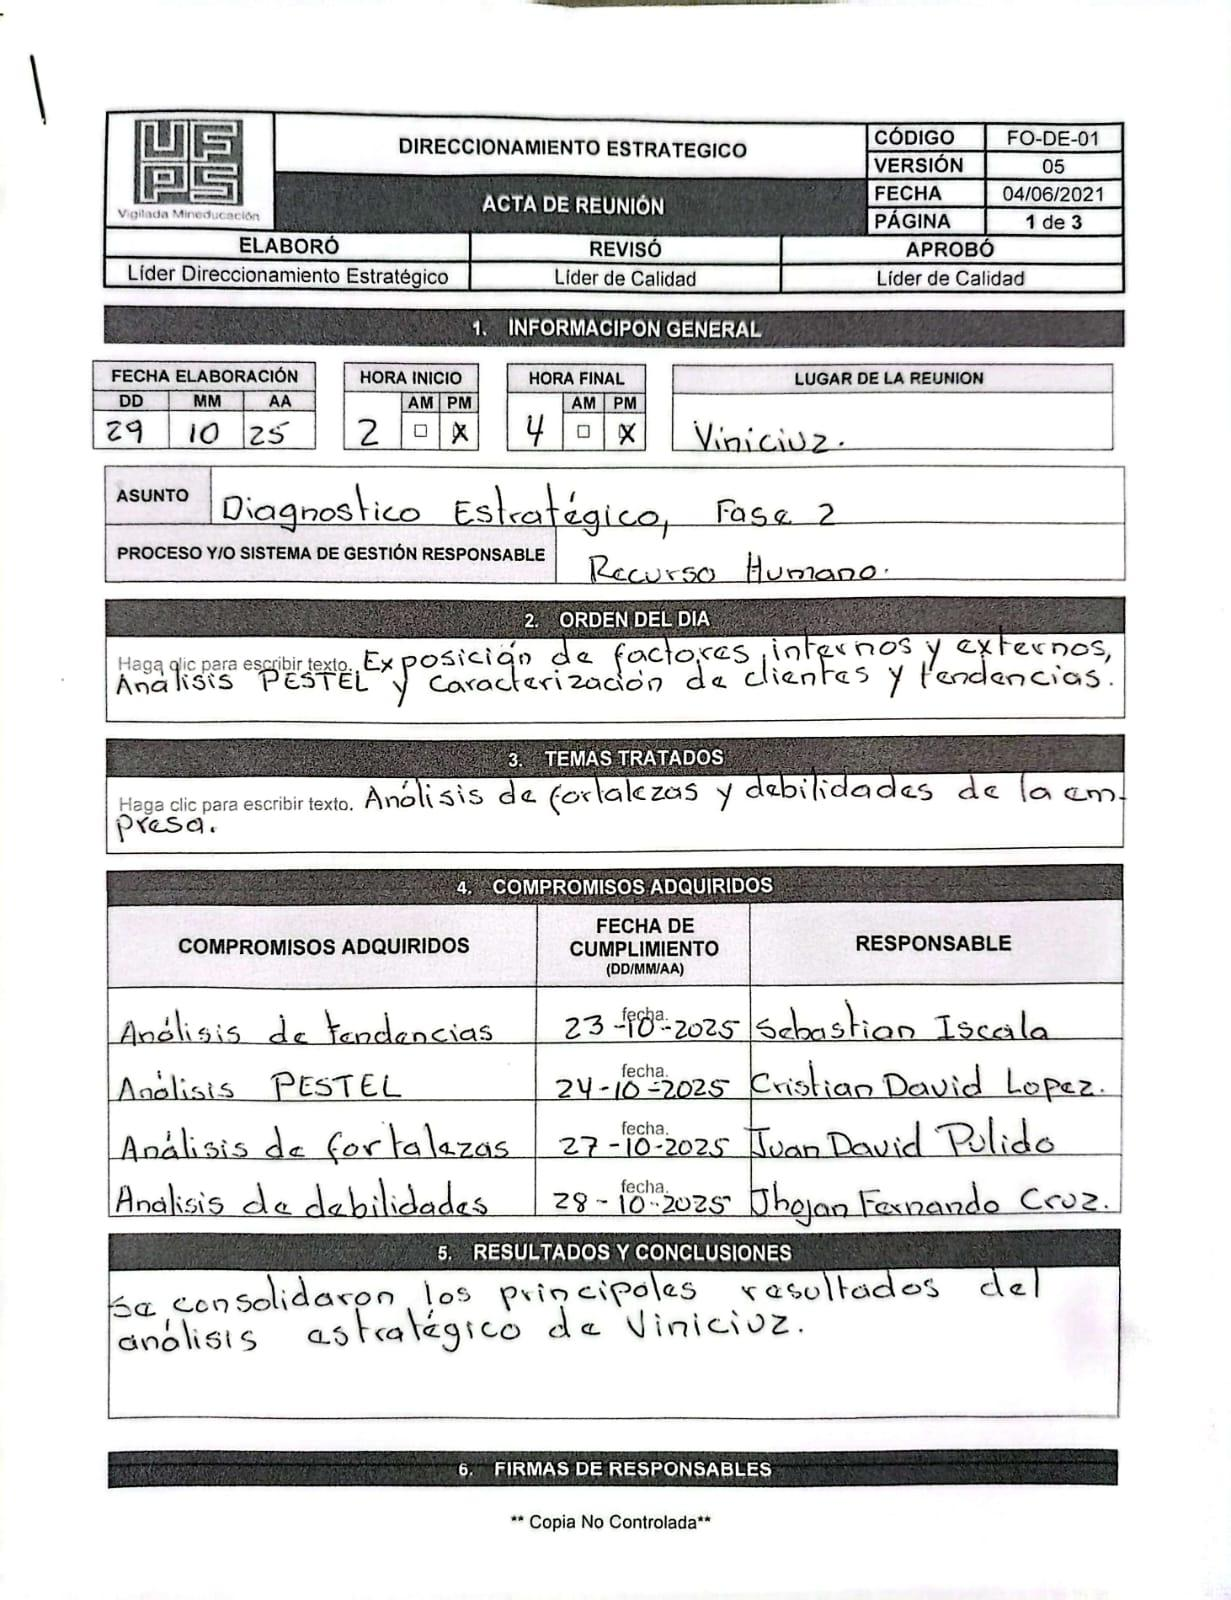 UFPS
Vigilada Mineducación
DIRECCIONAMIENTO ESTRATEGICO
ACTA DE REUNIÓN
CÓDIGO FO-DE-01
VERSIÓN 05
FECHA 04/06/2021
PÁGINA 1 de 3
ELABORÓ REVISÓ APROBÓ
Líder Direccionamiento Estratégico Líder de Calidad Líder de Calidad
1. INFORMACIPON GENERAL
FECHA ELABORACIÓN HORA INICIO HORA FINAL LUGAR DE LA REUNION
DD MM AA AM PM AM PM
29 10 25 2 ☐ X 4 ☐ X Viniciuz.
ASUNTO Diagnostico Estratégico, Fase 2
PROCESO Y/O SISTEMA DE GESTIÓN RESPONSABLE Recurso Humano.
2. ORDEN DEL DIA
Haga clic para escribir texto. Exposición de factores internos y externos,
Análisis PESTEL y caracterización de clientes y tendencias.
3. TEMAS TRATADOS
Haga clic para escribir texto. Análisis de fortalezas y debilidades de la em-
presa.
4. COMPROMISOS ADQUIRIDOS
COMPROMISOS ADQUIRIDOS FECHA DE CUMPLIMIENTO (DD/MM/AA) RESPONSABLE
Análisis de tendencias fecha. 23-10-2025 Sebastian Iscala
Análisis PESTEL fecha. 24-10-2025 Cristian David Lopez.
Análisis de fortalezas fecha. 27-10-2025 Juan David Pulido
Analisis de debilidades fecha. 28-10-2025 Jhojan Fernando Cruz.
5. RESULTADOS Y CONCLUSIONES
Se consolidaron los principales resultados del
análisis estratégico de Viniciuz.
6. FIRMAS DE RESPONSABLES
** Copia No Controlada**